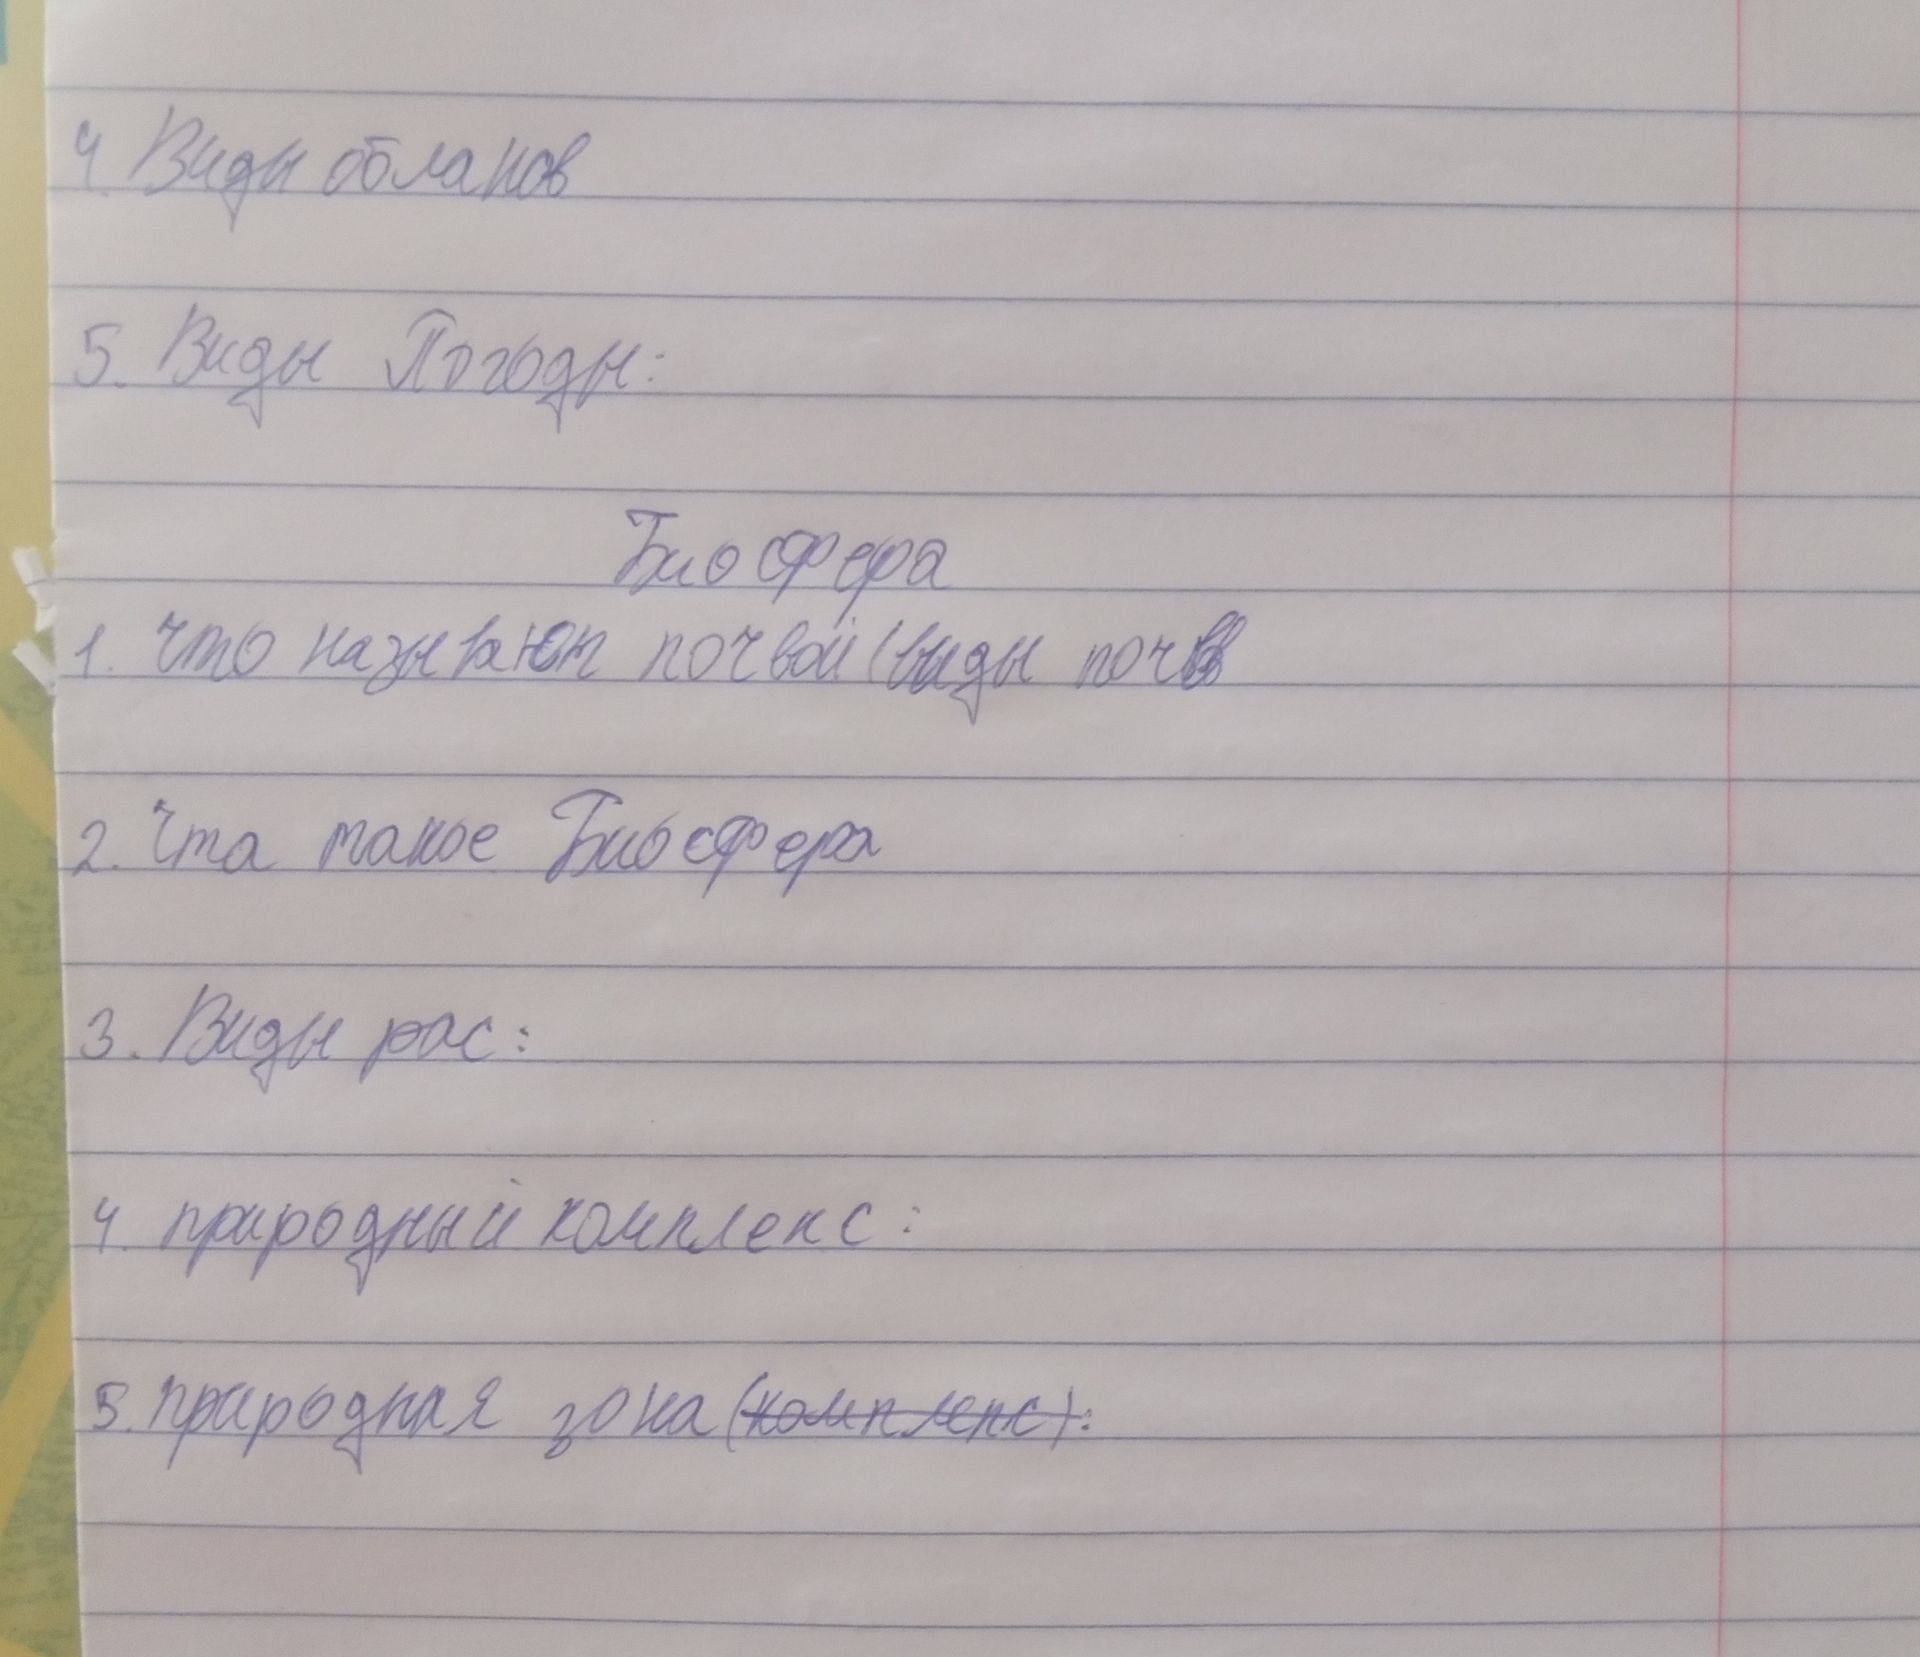 4. Виды облаков
5. Виды Погоды:
Биосфера
1. Что называют почвой (виды почв
2. Чта такое Биосфера
3. Виды рас:
4. природный комплекс:
5. природная зона (комплекс):